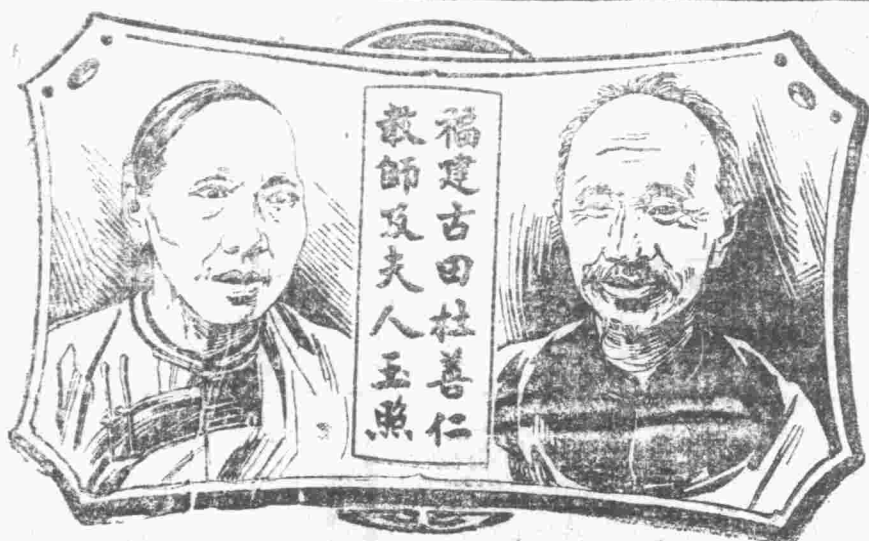 福建古田杜善仁
教師及夫人玉照